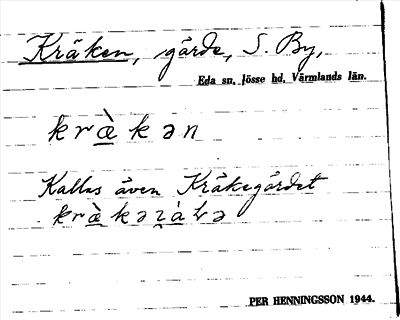 Kråken, gärde, S. By,
Eda sn. Jösse hd. Värmlands län.
krὰkən
Kallas även Kråkegärdet
PER HENNINGSSON 1944.